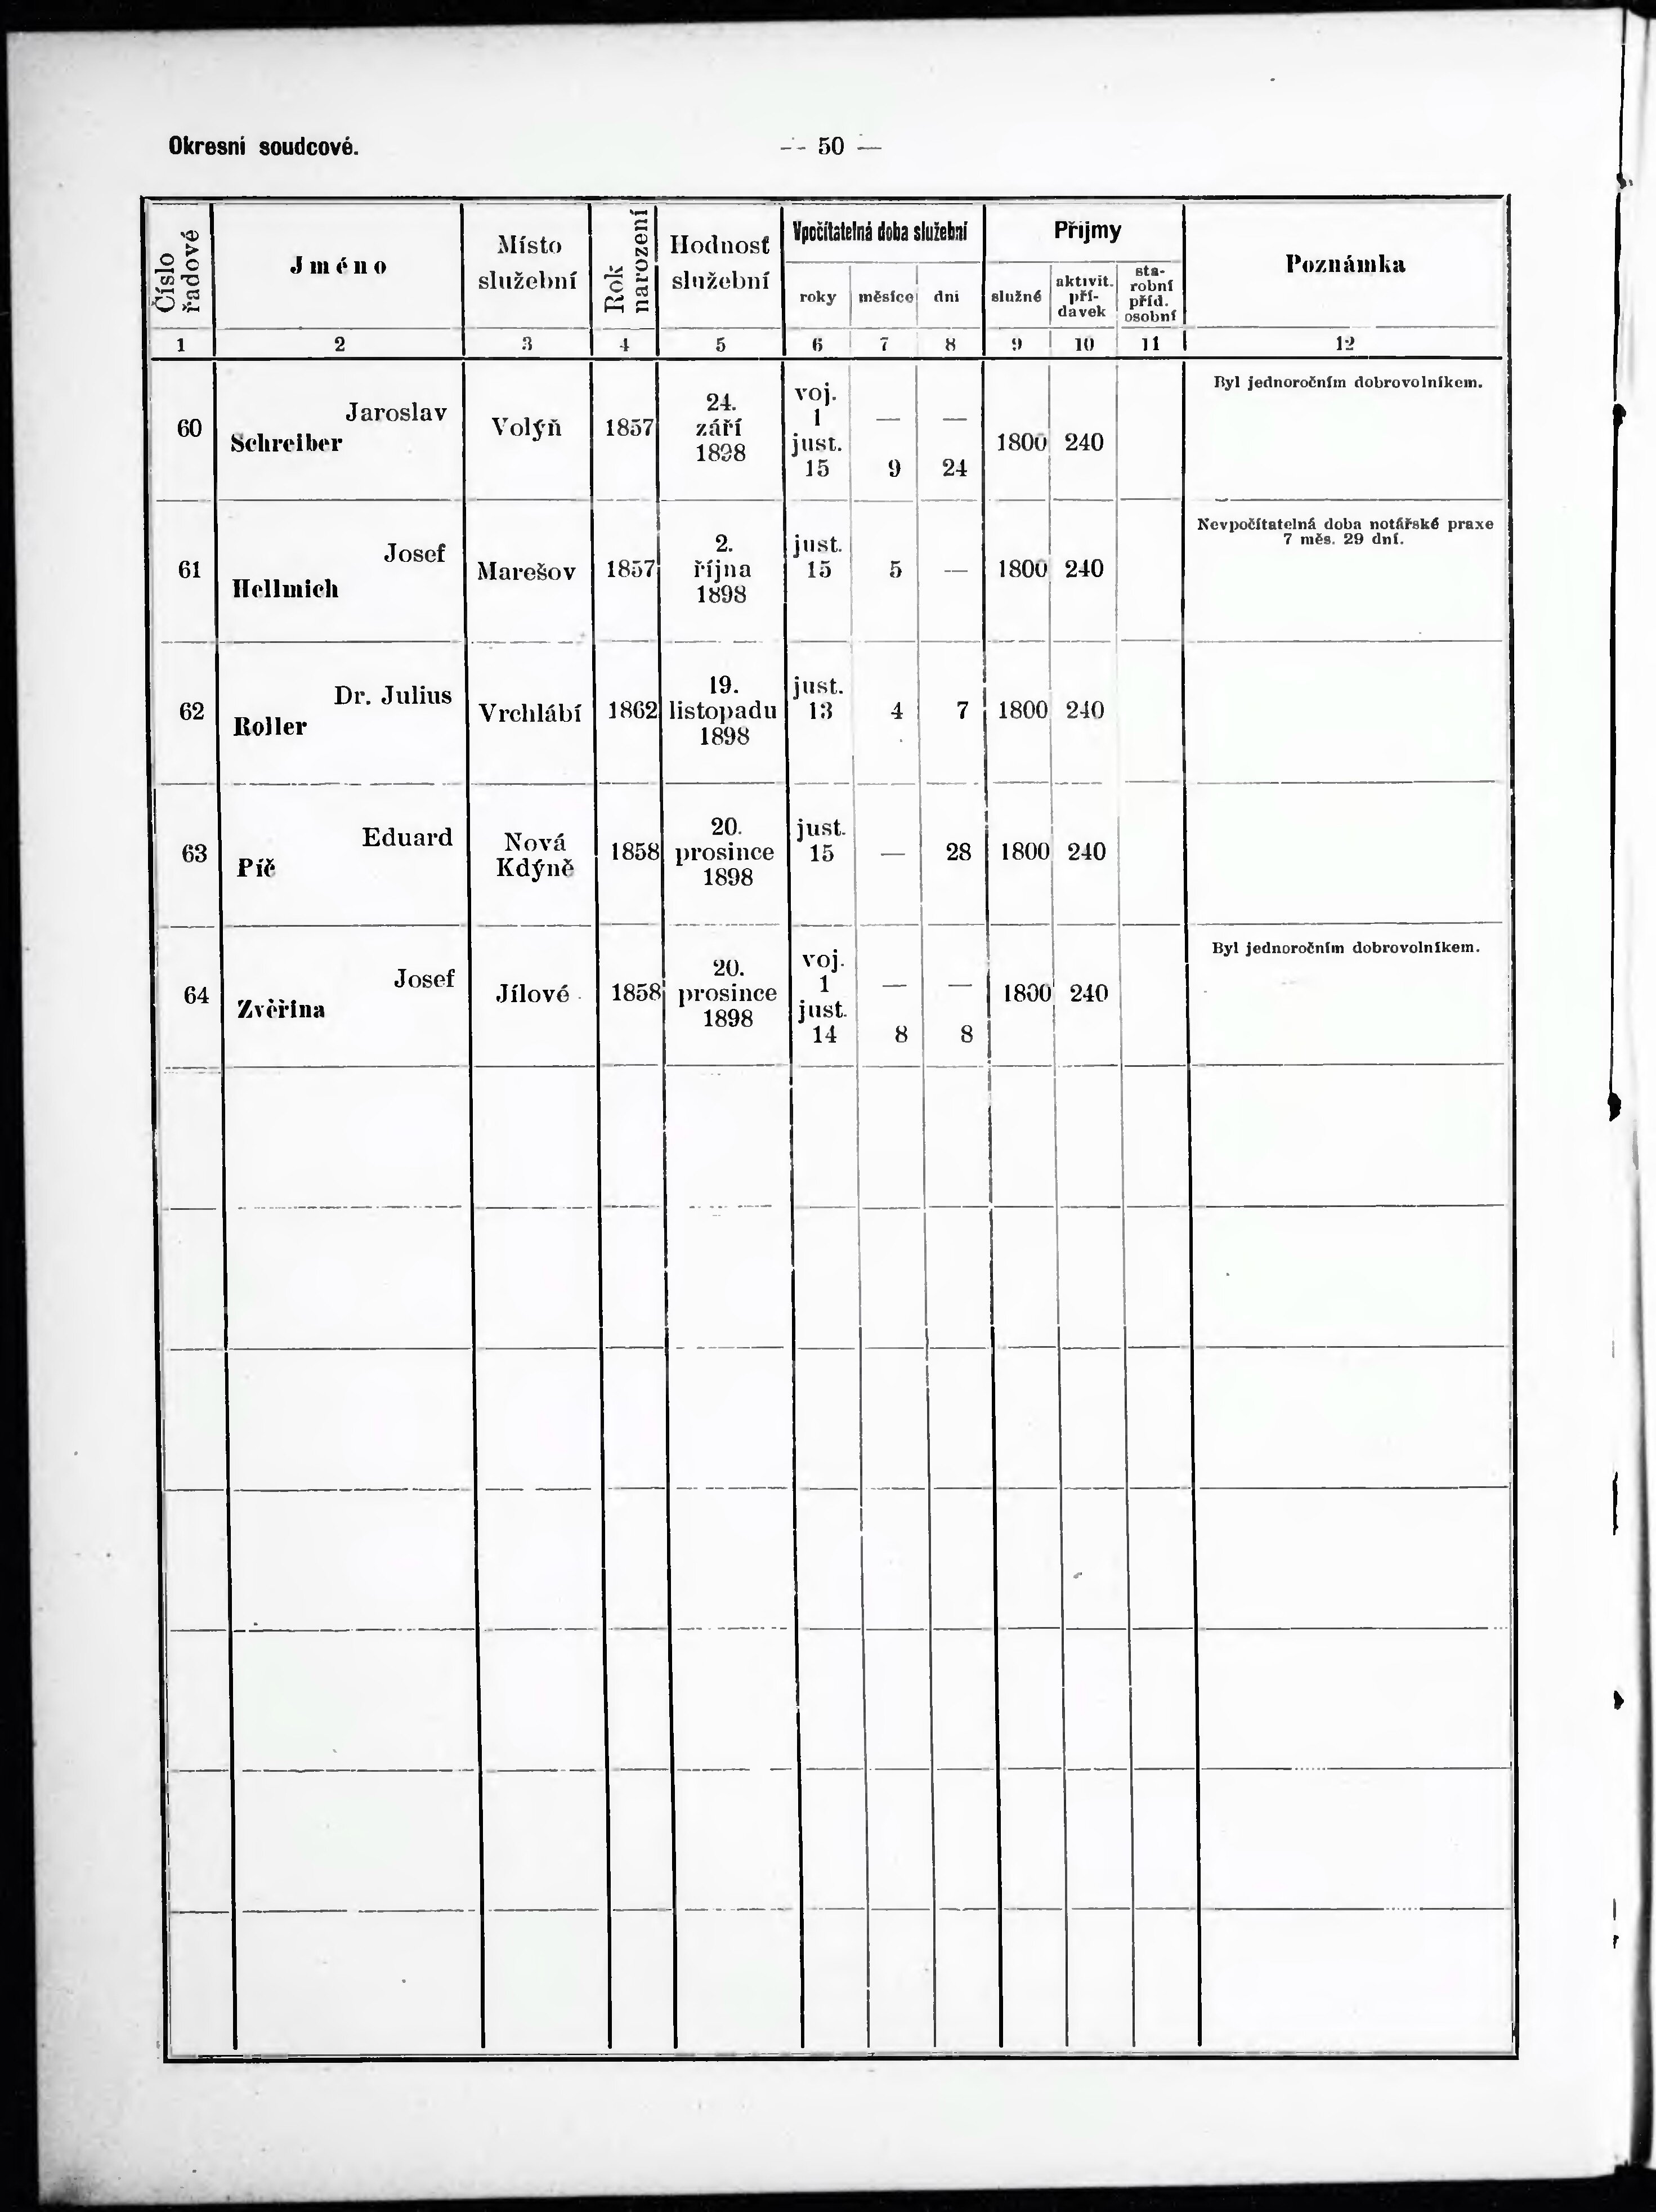 Okresní soudcové.
— 50 —
Číslo řadové
Jméno
Místo služební
Rok narození
Hodnosť služební
Vpočítatelná doba služební
roky měsíce dni
Příjmy
služné
aktivit. pří- davek
sta- robní příd. osobní
Poznámka
1 2 3 4 5 6 7 8 9 10 11 12
60
Jaroslav
Schreiber
Volýň
1857
24.
září
1898
voj.
1 — —
just.
15 9 24
1800 240
Byl jednoročním dobrovolníkem.
61
Josef
Hellmich
Marešov
1857
2.
října
1898
just.
15 5 —
1800 240
Nevpočítatelná doba notářské praxe
7 měs. 29 dní.
62
Dr. Julius
Roller
Vrchlábí
1862
19.
listopadu
1898
just.
13 4 7
1800 240
63
Eduard
Píč
Nová
Kdýně
1858
20.
prosince
1898
just.
15 — 28
1800 240
64
Josef
Zvěřina
Jílové
1858
20.
prosince
1898
voj.
1 — —
just.
14 8 8
1800 240
Byl jednoročním dobrovolníkem.